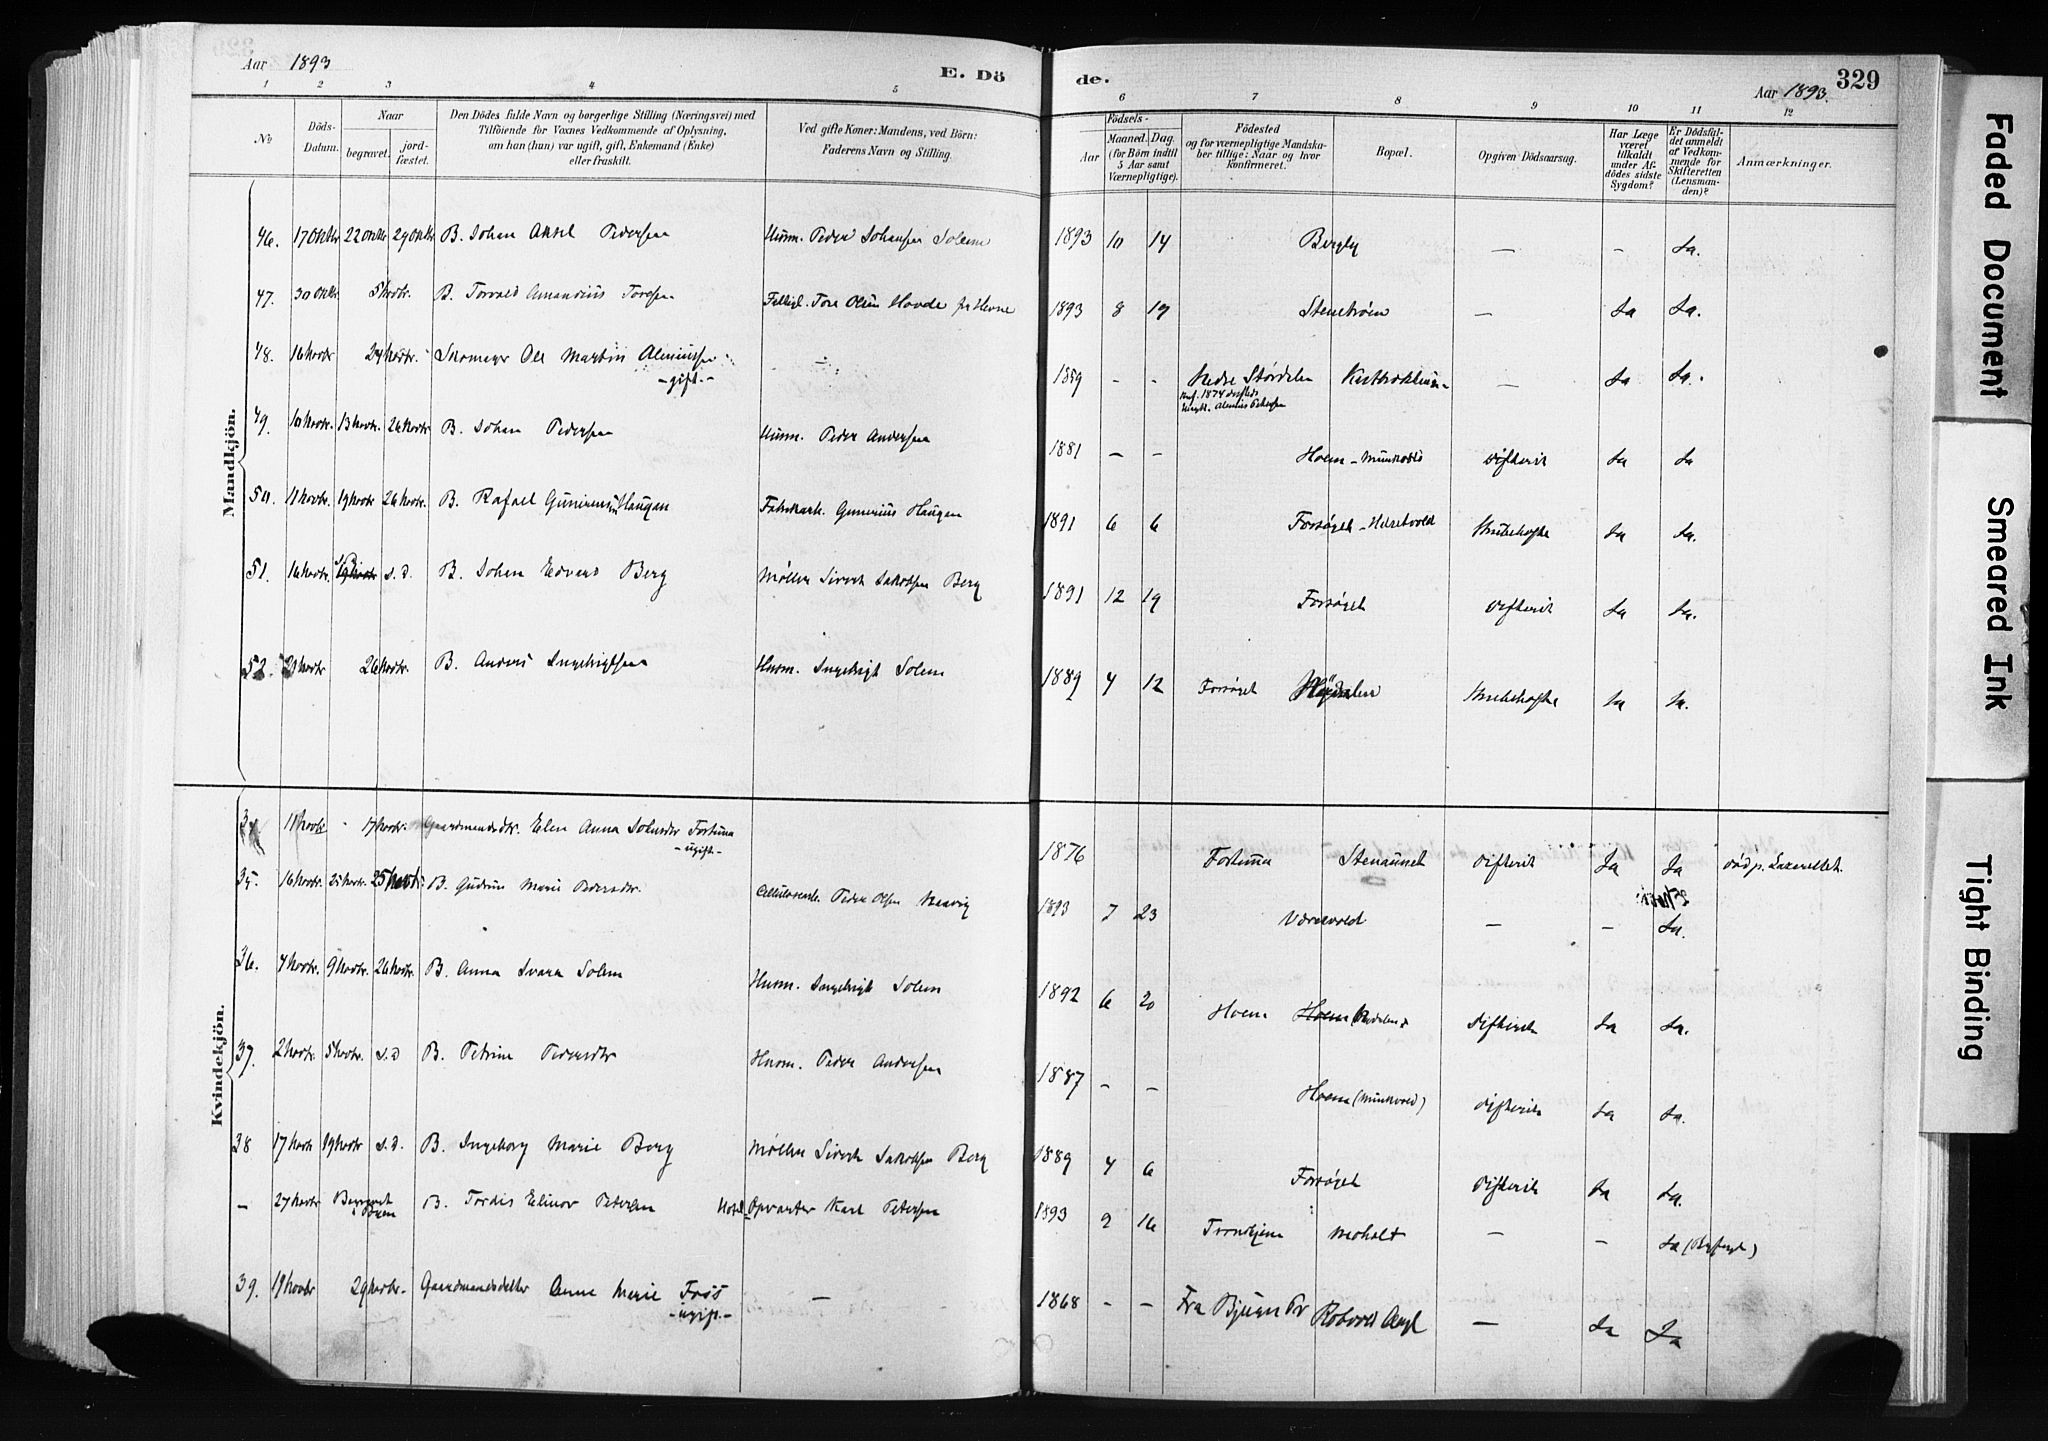 Aar 1893
E. Dö
de.
Aar 1893.
329
1 2 3 4 5 6 7 8 9 10 11 12
No
Döds-
Datum.
Naar
begravet.
jord-
fæstet.
Den Dödes fulde Navn og borgerlige Stilling (Næringsvei) med
Tilföiende for Voxnes Vedkommende af Oplysning,
om han (hun) var ugift, gift, Enkemand (Enke)
eller fraskilt.
Ved gifte Koner: Mandens, ved Börn:
Faderens Navn og Stilling.
Födsels-
Aar
Maaned. Dag.
(for Börn indtil
5 Aar samt
Værnepligtige).
Födested
og for værnepligtige Mandska-
ber tillige: Naar og hvor
konfirmeret.
Bopæl.
Opgiven Dödsaarsag.
Har Læge
været
tilkaldt
under Af-
dödes sidste
Sygdom?
Er Dödsfal-
det anmeldt
af Vedkom-
mende for
Skifteretten
(Lensman-
den)?
Anmærkninger.
Mandkjön.
46. 17 Oktbr 22 Oktbr 29 Oktbr B. Johan Aksel Pedersen Husm. Peder Johansen Solem 1893 10 14 Bergly — – Ja.
47. 30 Oktbr. 5 Novbr. B. Torvald Amandius Toresen Tore Olsen Hovde fra Hevne 1893 8 19 — Ja Ja.
48. 16 Novbr 24 Novbr. Skomager Ole Martin — 1859 – – Nedre Størdalen — Ja Ja.
-gift-
Konf. 1874
49. 10 Novbr. 13 Novbr. 26 Novbr. B. Johan Pedersen Husm. Peder Andersen 1881 – – Hoem – Munkvold Difterit Ja Ja
50. 11 Novbr. 19 Novbr 26 Novbr. B. Rafael Haugan Gunerius Haugan 1891 6 6 Forsøget Strubehoste Ja Ja.
51. 16 Novbr. s. d. B. Johan Edvard Berg Møller Sivert Jakobsen Berg 1891 12 19 Forsøget Difterit Ja Ja.
52. 21 Novbr 26 Novbr. B. Anders Ingebrigtsen Husm. Ingebrigt Solem 1889 4 12 Forsøget Strubehoste Ja Ja.
Kvindekjön.
34 11 Novbr 17 Novbr. Gaardmandsdtr. Elen Anna Johnsdtr Fortuna 1876 Fortuna Stenaunet Difterit Ja Ja
-ugift-
35. 16 Novbr. 25 Novbr. 25 Novbr. B. Gudrun Marie Pedersdtr. Peder Olsen 1893 7 23 Væresvold — – Ja.
36. 4 Novbr. 9 Novbr. 26 Novbr. B. Anna Svara Solem Husm. Ingebrigt Solem 1892 6 20 Hoem Hoem Difterit Ja Ja.
37. 2 Novbr. 5 Novbr. s. d B. Petrine Pedersdtr Husm. Peder Andersen 1887 – – Hoem (Munkvold) Difterit Ja Ja.
38 17 Novbr 19 Novbr. s. d. B. Ingeborg Marie Berg Møller Sivert Jakobsen Berg 1889 4 6 Forsøget Difterit Ja Ja.
– 27 Novbr Begravet i Byen B. Tordis Elinor Petersen Hotel Opvarter Karl Petersen 1893 2 16 Trondhjem Moholt — – Ja
39. 19 Novbr 29 Novbr. Gaardmandsdatter Anne Marie — 1868 – – Fra Bjugn — Ja Ja
-ugift.-
Faded Document
Smeared Ink
Tight Binding